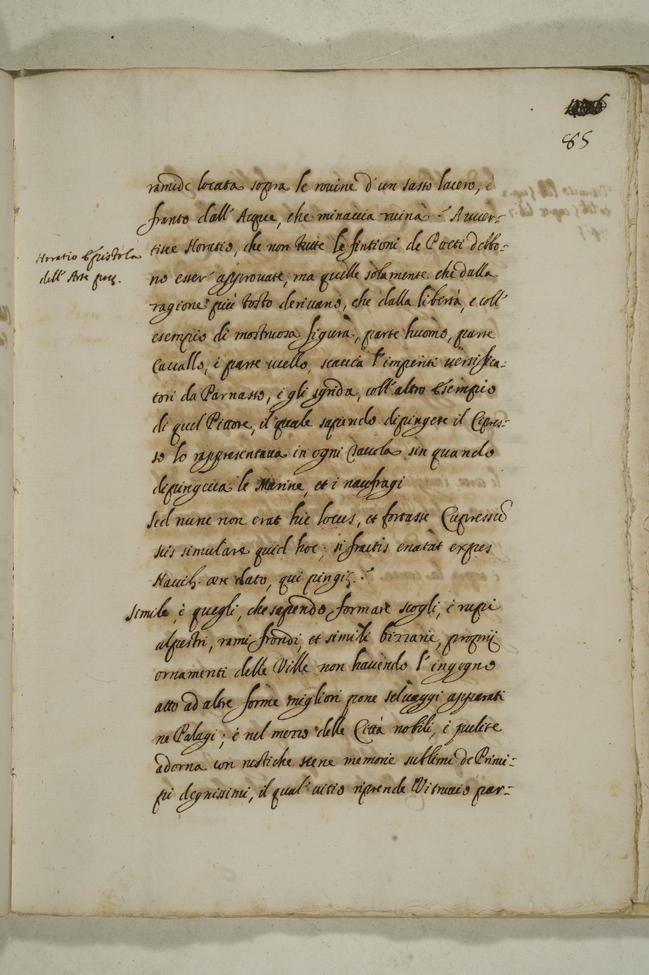 85
ramide locata sopra le rouine d'un sasso lacero, e
franto dall'Acque, che minaccia ruina. Auuer-
tisce Horatio, che non tutte le fintioni de Poeti debbo-
Horatio Epistola
dell'Arte poet.
no esser' approuate, ma quelle solamente che dalla
ragione più tosto deriuano, che dalla libertà, e coll'
esempio di mostruosa figura, parte huomo, parte
Cauallo, e parte uccello, scaccia l'imperiti uersifica-
tori da Parnasso, e gli sgrida, coll'altro Esempio
di quel Pittore, il quale sapendo dipingere il Cipres-
so lo rappresentaua in ogni Tauola sin quando
dipingeua le Marine, et i naufragi
Sed nunc non erat hic locus, et fortasse Cupressũ
scis simulare quid hoc; si fractis enatat expes
Nauib. ære dato, qui pingit.
Simile, è quegli, che sapendo formare scogli, e rupi
alpestri, rami, frondi, et simili bizzarie, proprij
ornamenti delle Ville non hauendo l'ingegno
atto ad altre forme migliori pone seluaggi apparati
ne Palagi; e nel mezzo delle Città nobili, e pulite
adorna con rustiche scene memorie sublimi de Princi-
pi degnissimi, il qual uitio riprende Vitruuio par-